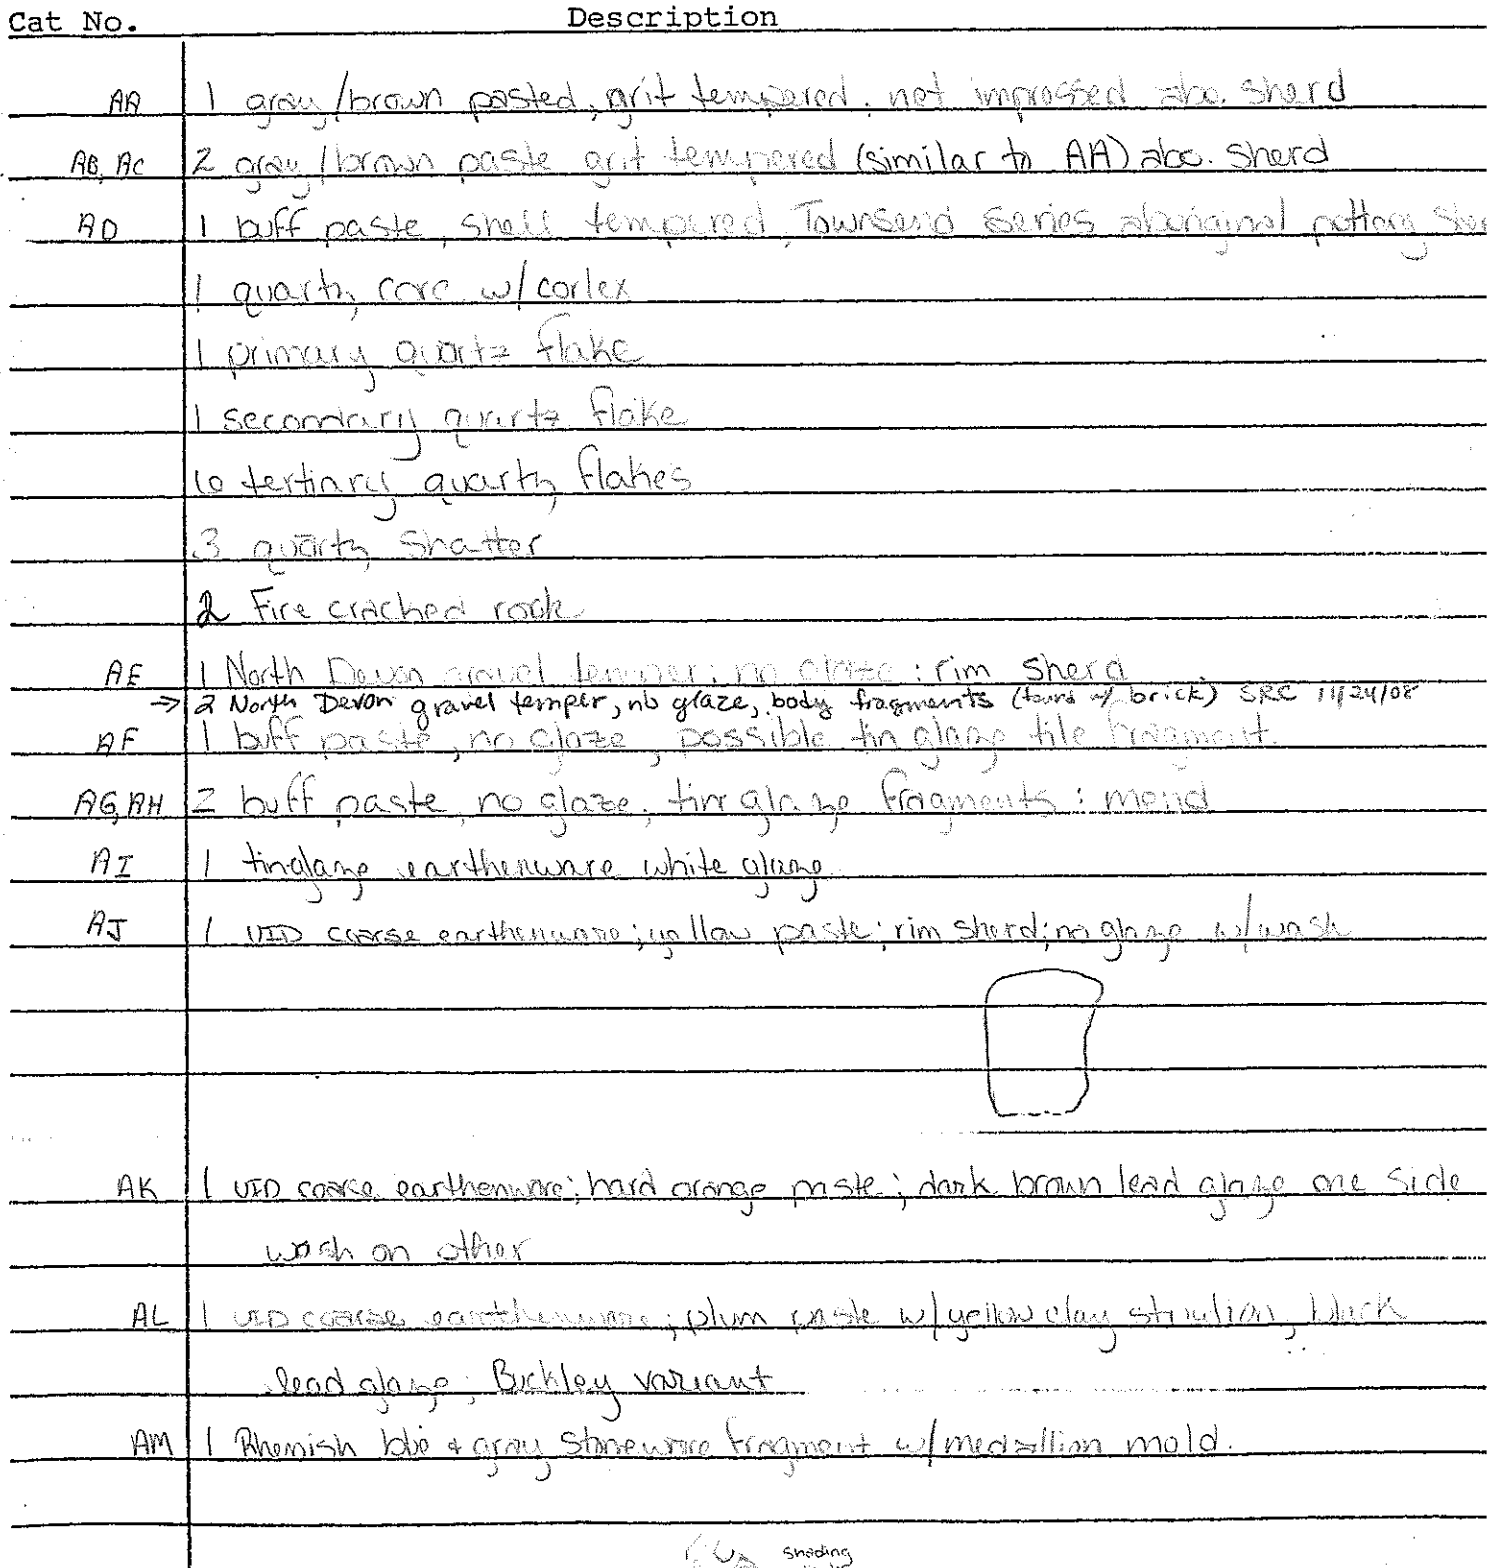 Cat No. Description
AA 1 gray/brown pasted, grit tempered, net impressed abo. sherd
AB, AC 2 gray/brown paste grit tempered (similar to AA) abo. sherd
AD 1 buff paste, shell tempered, Townsend series aboriginal pottery sher
1 quartz core w/cortex
1 primary quartz flake
1 secondary quartz flake
10 tertiary quartz flakes
3 quartz shatter
2 Fire cracked rock
AE 1 North Devon gravel temper; no glaze; rim sherd
→ 2 North Devon gravel temper, no glaze, body fragments (found w/ brick) SRC 11/24/08
AF 1 buff paste, no glaze, possible tin glaze tile fragment.
AG, AH 2 buff paste, no glaze, tin glaze fragments: mend
AI 1 tinglaze earthenware white glaze
AJ 1 UID coarse earthenware; yellow paste; rim sherd; no glaze w/wash
AK 1 UID coarse earthenware; hard orange paste; dark brown lead glaze one side
wash on other
AL 1 UID coarse earthenware; plum paste w/yellow clay striation, black
lead glaze; Buckley variant
AM 1 Rhenish blue + gray stoneware fragment w/medallion mold.
shading